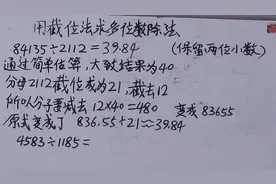 用截位法求多位数除法
84135÷2112=39.84 (保留两位小数)
通过简单估算,大致结果为40
分母2112截位成为21,截去12
所以分子要减去12×40=480 变成83655
原式变成了 836.55÷21≈39.84
4583÷1185=